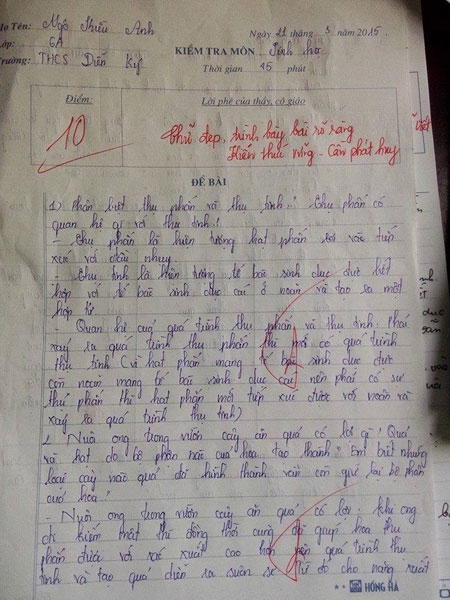 Họ Tên: Ngô Thiều Anh
Lớp: 6A
Trường: THCS Diễn Kỷ
Ngày 21 tháng 3 năm 2015.
KIỂM TRA MÔN Sinh học
Thời gian 45 phút
Điểm:
Lời phê của thầy, cô giáo
10
Chữ đẹp, trình bày bài rõ ràng
Kiến thức vững - Cần phát huy
ĐỀ BÀI
1) Phân biệt thụ phấn và thụ tinh? Thụ phấn có
quan hệ gì với thụ tinh?
- Thụ phấn là hiện tượng hạt phấn rơi vào tiếp
xúc với đầu nhụy
- Thụ tinh là hiện tượng tế bào sinh dục đực kết
hợp với tế bào sinh dục cái ở noãn và tạo ra một
hợp tử.
- Quan hệ của quá trình thụ phấn và thụ tinh: Phải
xảy ra quá trình thụ phấn thì mới có quá trình
thụ tinh (vì hạt phấn mang tế bào sinh dục đực
còn noãn mang tế bào sinh dục cái nên phải có sự
thụ phấn thì hạt phấn mới tiếp xúc được với noãn và
xảy ra quá trình thụ tinh)
2. Nuôi ong trong vườn cây ăn quả có lợi gì? Quả
và hạt do bộ phận nào của hoa tạo thành? Em biết những
loại cây nào quả đã hình thành vẫn còn giữ lại bộ phận
của hoa?
- Nuôi ong trong vườn cây ăn quả có lợi: khi ong
đi kiếm mật thì đồng thời cũng đã giúp hoa thụ
phấn được với xác xuất cao hơn nên quá trình thụ
tinh và tạo quả diễn ra suôn sẻ. Từ đó cho năng suất
HỒNG HÀ